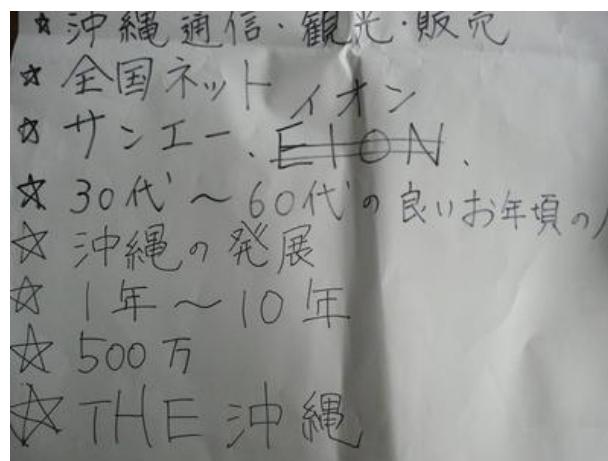 ☆ 沖縄通信・観光・販売
☆ 全国ネット
☆ サンエー、イオン EION、
☆ 30代〜60代の良いお年頃の
☆ 沖縄の発展
☆ 1年〜10年
☆ 500万
☆ THE 沖縄